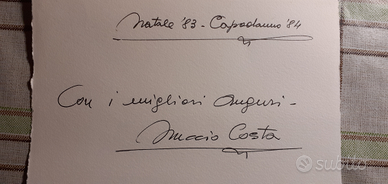 Natale '83 - Capodanno '84
Con i migliori auguri -
Nuccio Costa
subito